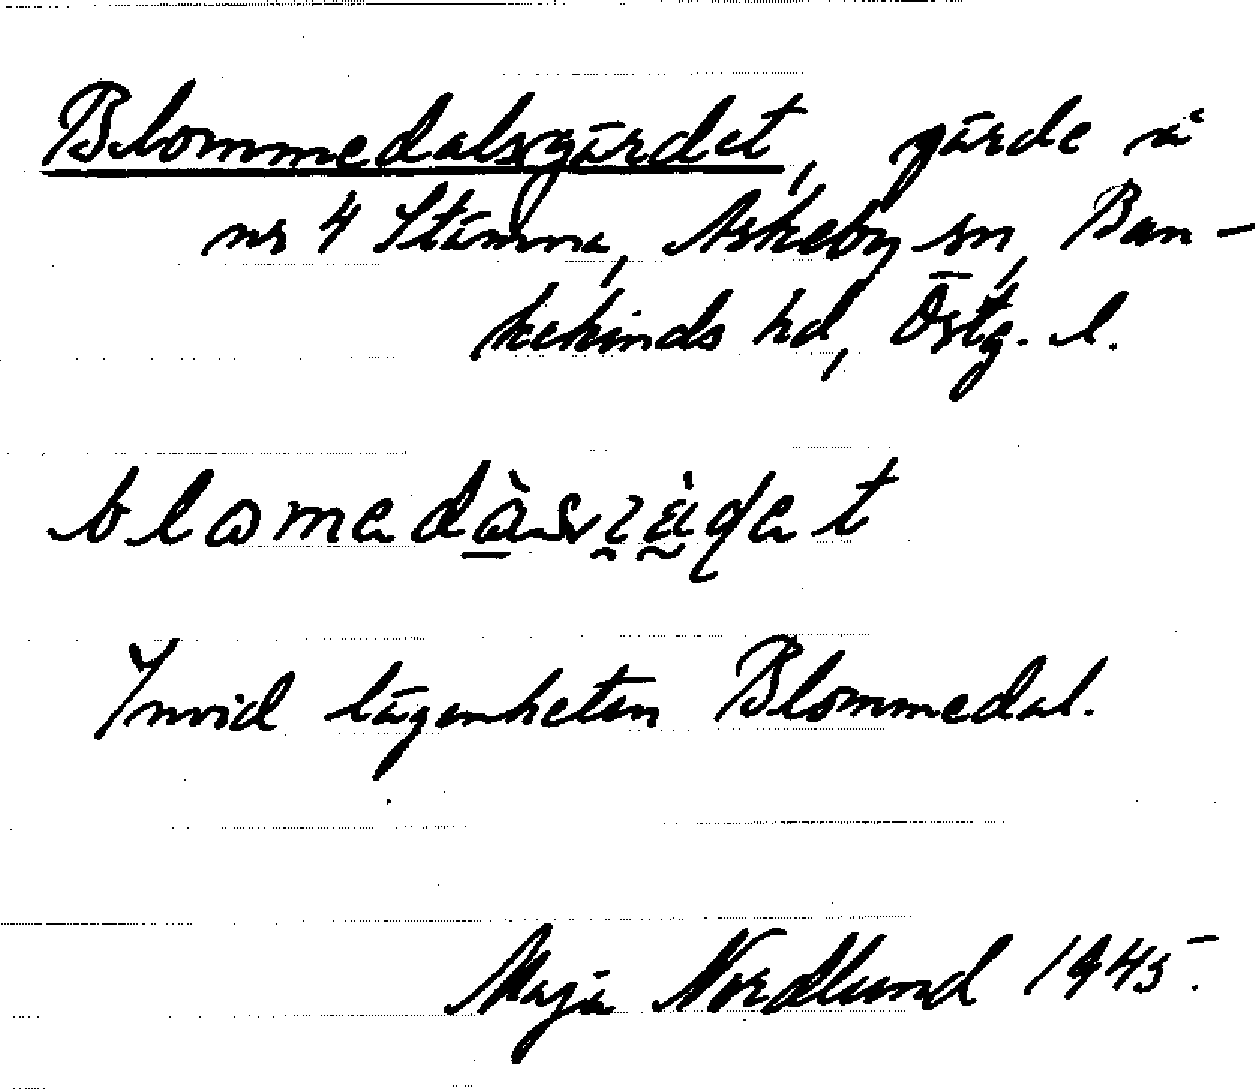 Blommedalsgärdet, gärde å
nr 4 Stämma, Askeby sn, Ban-
kekinds hd, Östg. l.
Invid lägenheten Blommedal.
Maja Nordlund 1945.